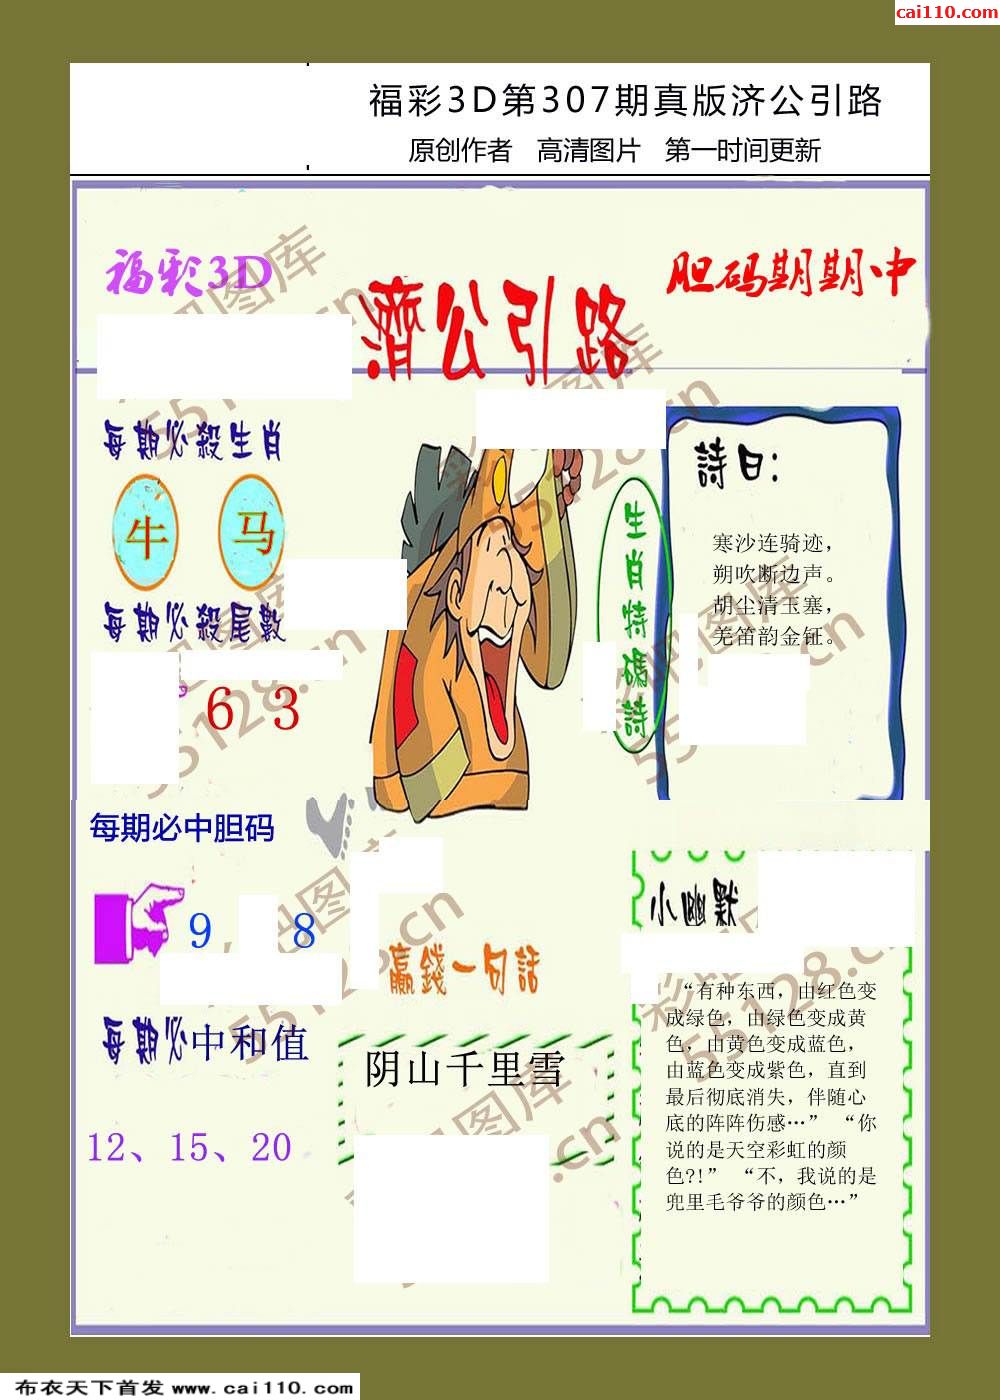 cai110.com
福彩3D第307期真版济公引路
原创作者 高清图片 第一时间更新
福彩3D
濟公引路
胆码期期中
每期必殺生肖
牛 马
每期必殺尾數
6 3
生肖特碼詩
詩曰：
寒沙连骑迹，
朔吹断边声。
胡尘清玉塞，
羌笛韵金钲。
每期必中胆码
9 8
每期必中和值
12、15、20
贏錢一句話
阴山千里雪
小幽默
“有种东西，由红色变
成绿色，由绿色变成黄
色，由黄色变成蓝色，
由蓝色变成紫色，直到
最后彻底消失，伴随心
底的阵阵伤感…” “你
说的是天空彩虹的颜
色?!” “不，我说的是
兜里毛爷爷的颜色…”
彩吧图库
55128.cn
布衣天下首发 www.cai110.com